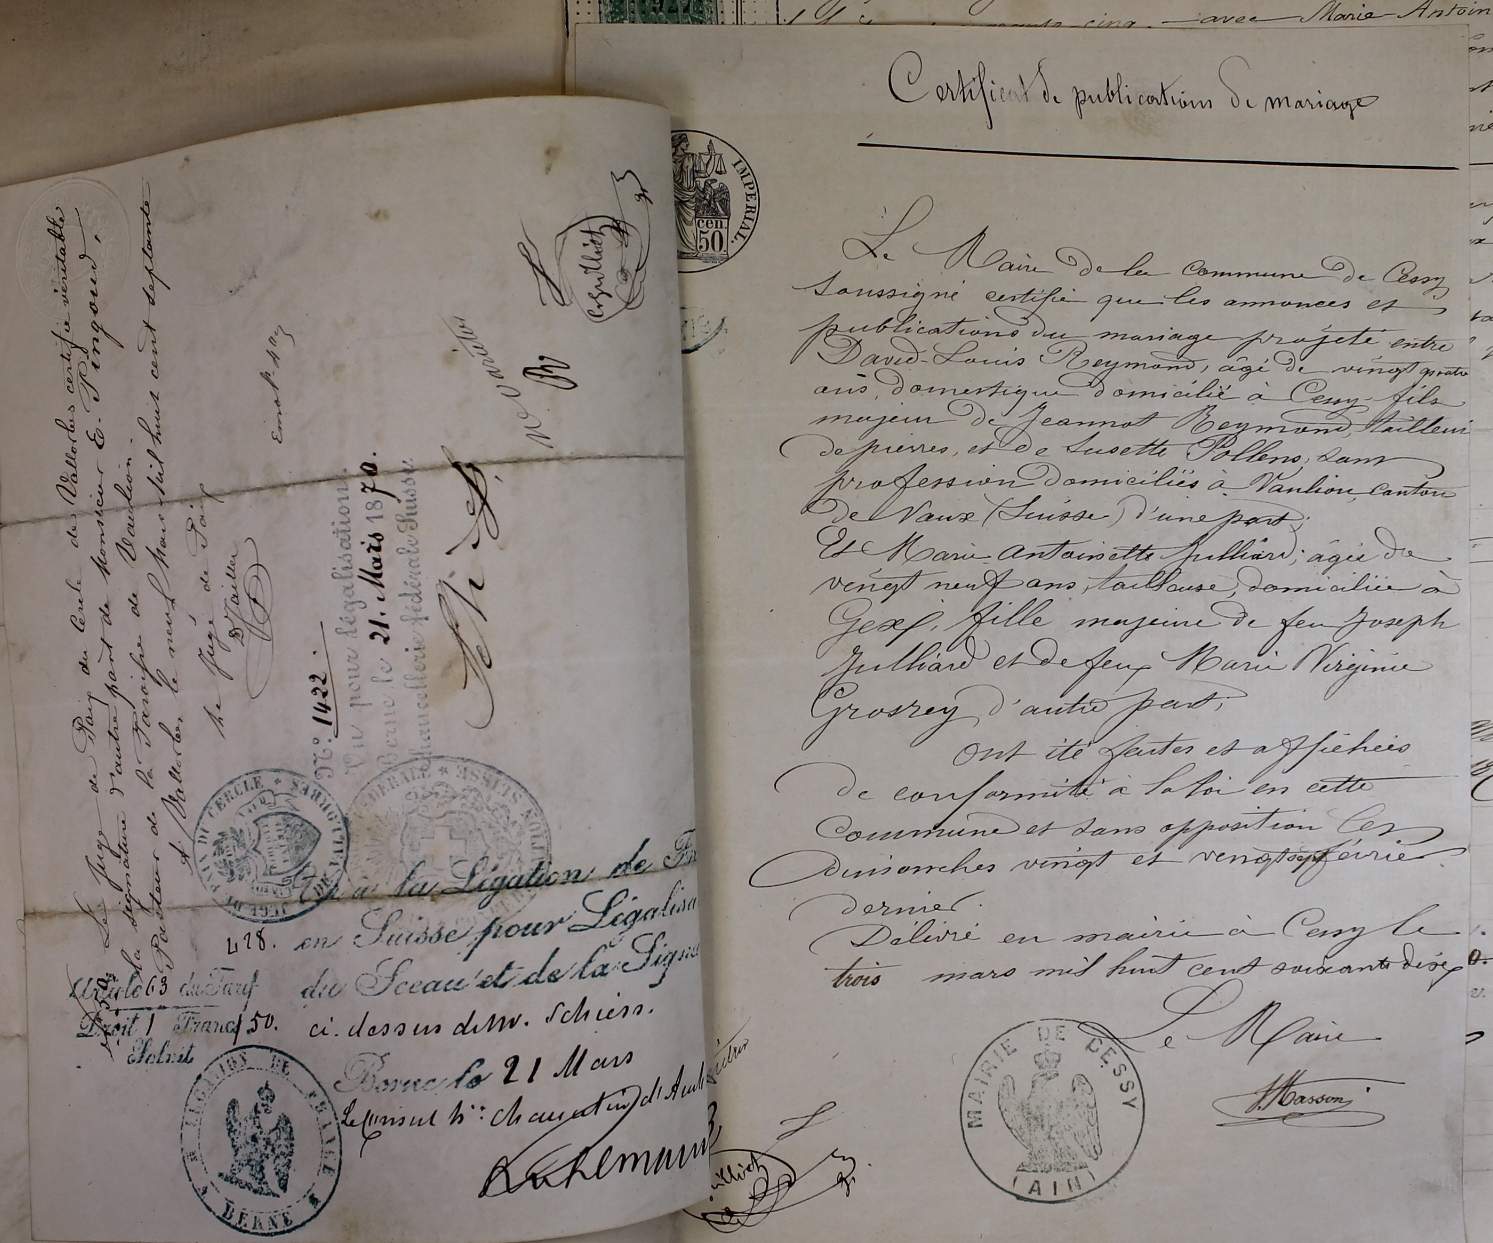 avec Marie Antoin
Certificat de publications de mariage
IMPERIAL.
50
cen.
Le Maire de la commune de Cessy
soussigné certifie que les annonces et
publications du mariage projeté entre
David-Louis Reymond, âgé de vingt quatre
ans, domestique domicilié à Cessy fils
majeur de Jeannot Reymond, tailleur
de pierres, et de Susette Pollens, sans
profession domiciliés à Vaulion, canton
de Vaux (Suisse) d'une part;
Et Marie Antoinette Julliard, âgée de
vingt neuf ans, tailleuse, domiciliée à
Gex, fille majeure de feu Joseph
Julliard et de feux Marie Virginie
Grosrey d'autre part;
ont été faites et affichées
de conformité à la loi en cette
commune et sans opposition les
dimanches vingt et vingt sept février
dernier.
Délivré en mairie à Cessy le
trois mars mil huit cent soixante dix
Le Maire
Masson
MAIRIE DE CESSY
(AIN)
Le Juge de Paix du Cercle de Vallorbes certifie véritable
la signature d'autre part de Monsieur E. Pingoud,
Pasteur de la Paroisse de Vaulion.
A Vallorbes le neuf Mars mil huit cent septante
Le Juge de Paix
Emol
No. 1422.
Vu pour légalisation.
Berne le 21. Mars 1870.
Chancellerie fédérale Suisse
Schieß
JUGE DE PAIX DU CERCLE
Vu à la Légation de Fr
428. en Suisse pour Légalisa
du Sceau et de la Signa
ci-dessus de M. Schiess.
Article 63 du Tarif
Droit 1 Franc 50.
Berne le 21 Mars
Le Consul hre Chancelier
LEGATION DE FRANCE
BERNE